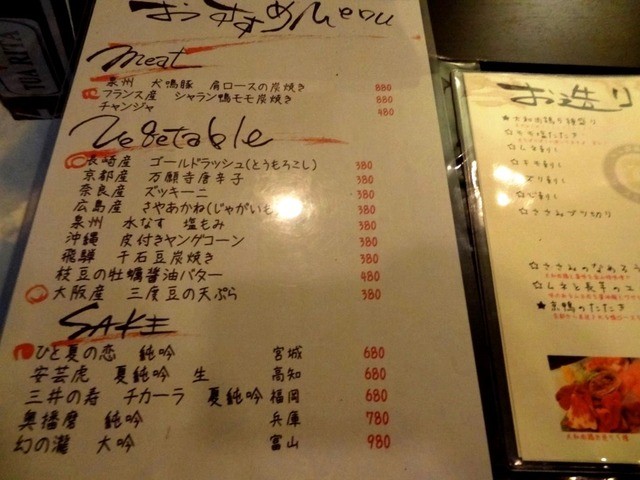 おすすめMenu
Meat
泉州 犬鳴豚 肩ロースの炭焼き 880
フランス産 シャラン鴨モモ炭焼き 880
チャンジャ 480
Vegetable
長崎産 ゴールドラッシュ(とうもろこし) 380
京都産 万願寺唐辛子 380
奈良産 ズッキーニ 380
広島産 さやあかね(じゃがいも 380
泉州 水なす 塩もみ 380
沖縄 皮付きヤングコーン 380
飛騨 千石豆炭焼き 380
枝豆の牡蠣醤油バター 480
大阪産 三度豆の天ぷら 380
SAKE
ひと夏の恋 純吟 宮城 680
安芸虎 夏純吟 生 高知 680
三井の寿 チカーラ 夏純吟 福岡 680
奥播磨 純吟 兵庫 780
幻の瀧 大吟 富山 980
お造り
★大和肉鶏り種盛り
☆モモ塩たたき
☆ムネ刺し
☆モモ刺し
☆ズリ刺し
☆心刺し
☆ささみブツ切り
☆ささみのなめろう
☆ムネと長芋のユ
★京鴨のたたき